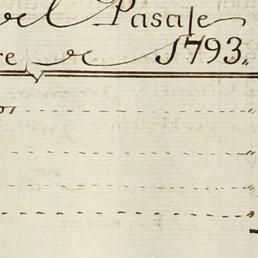 el Pasaje
re 1793.